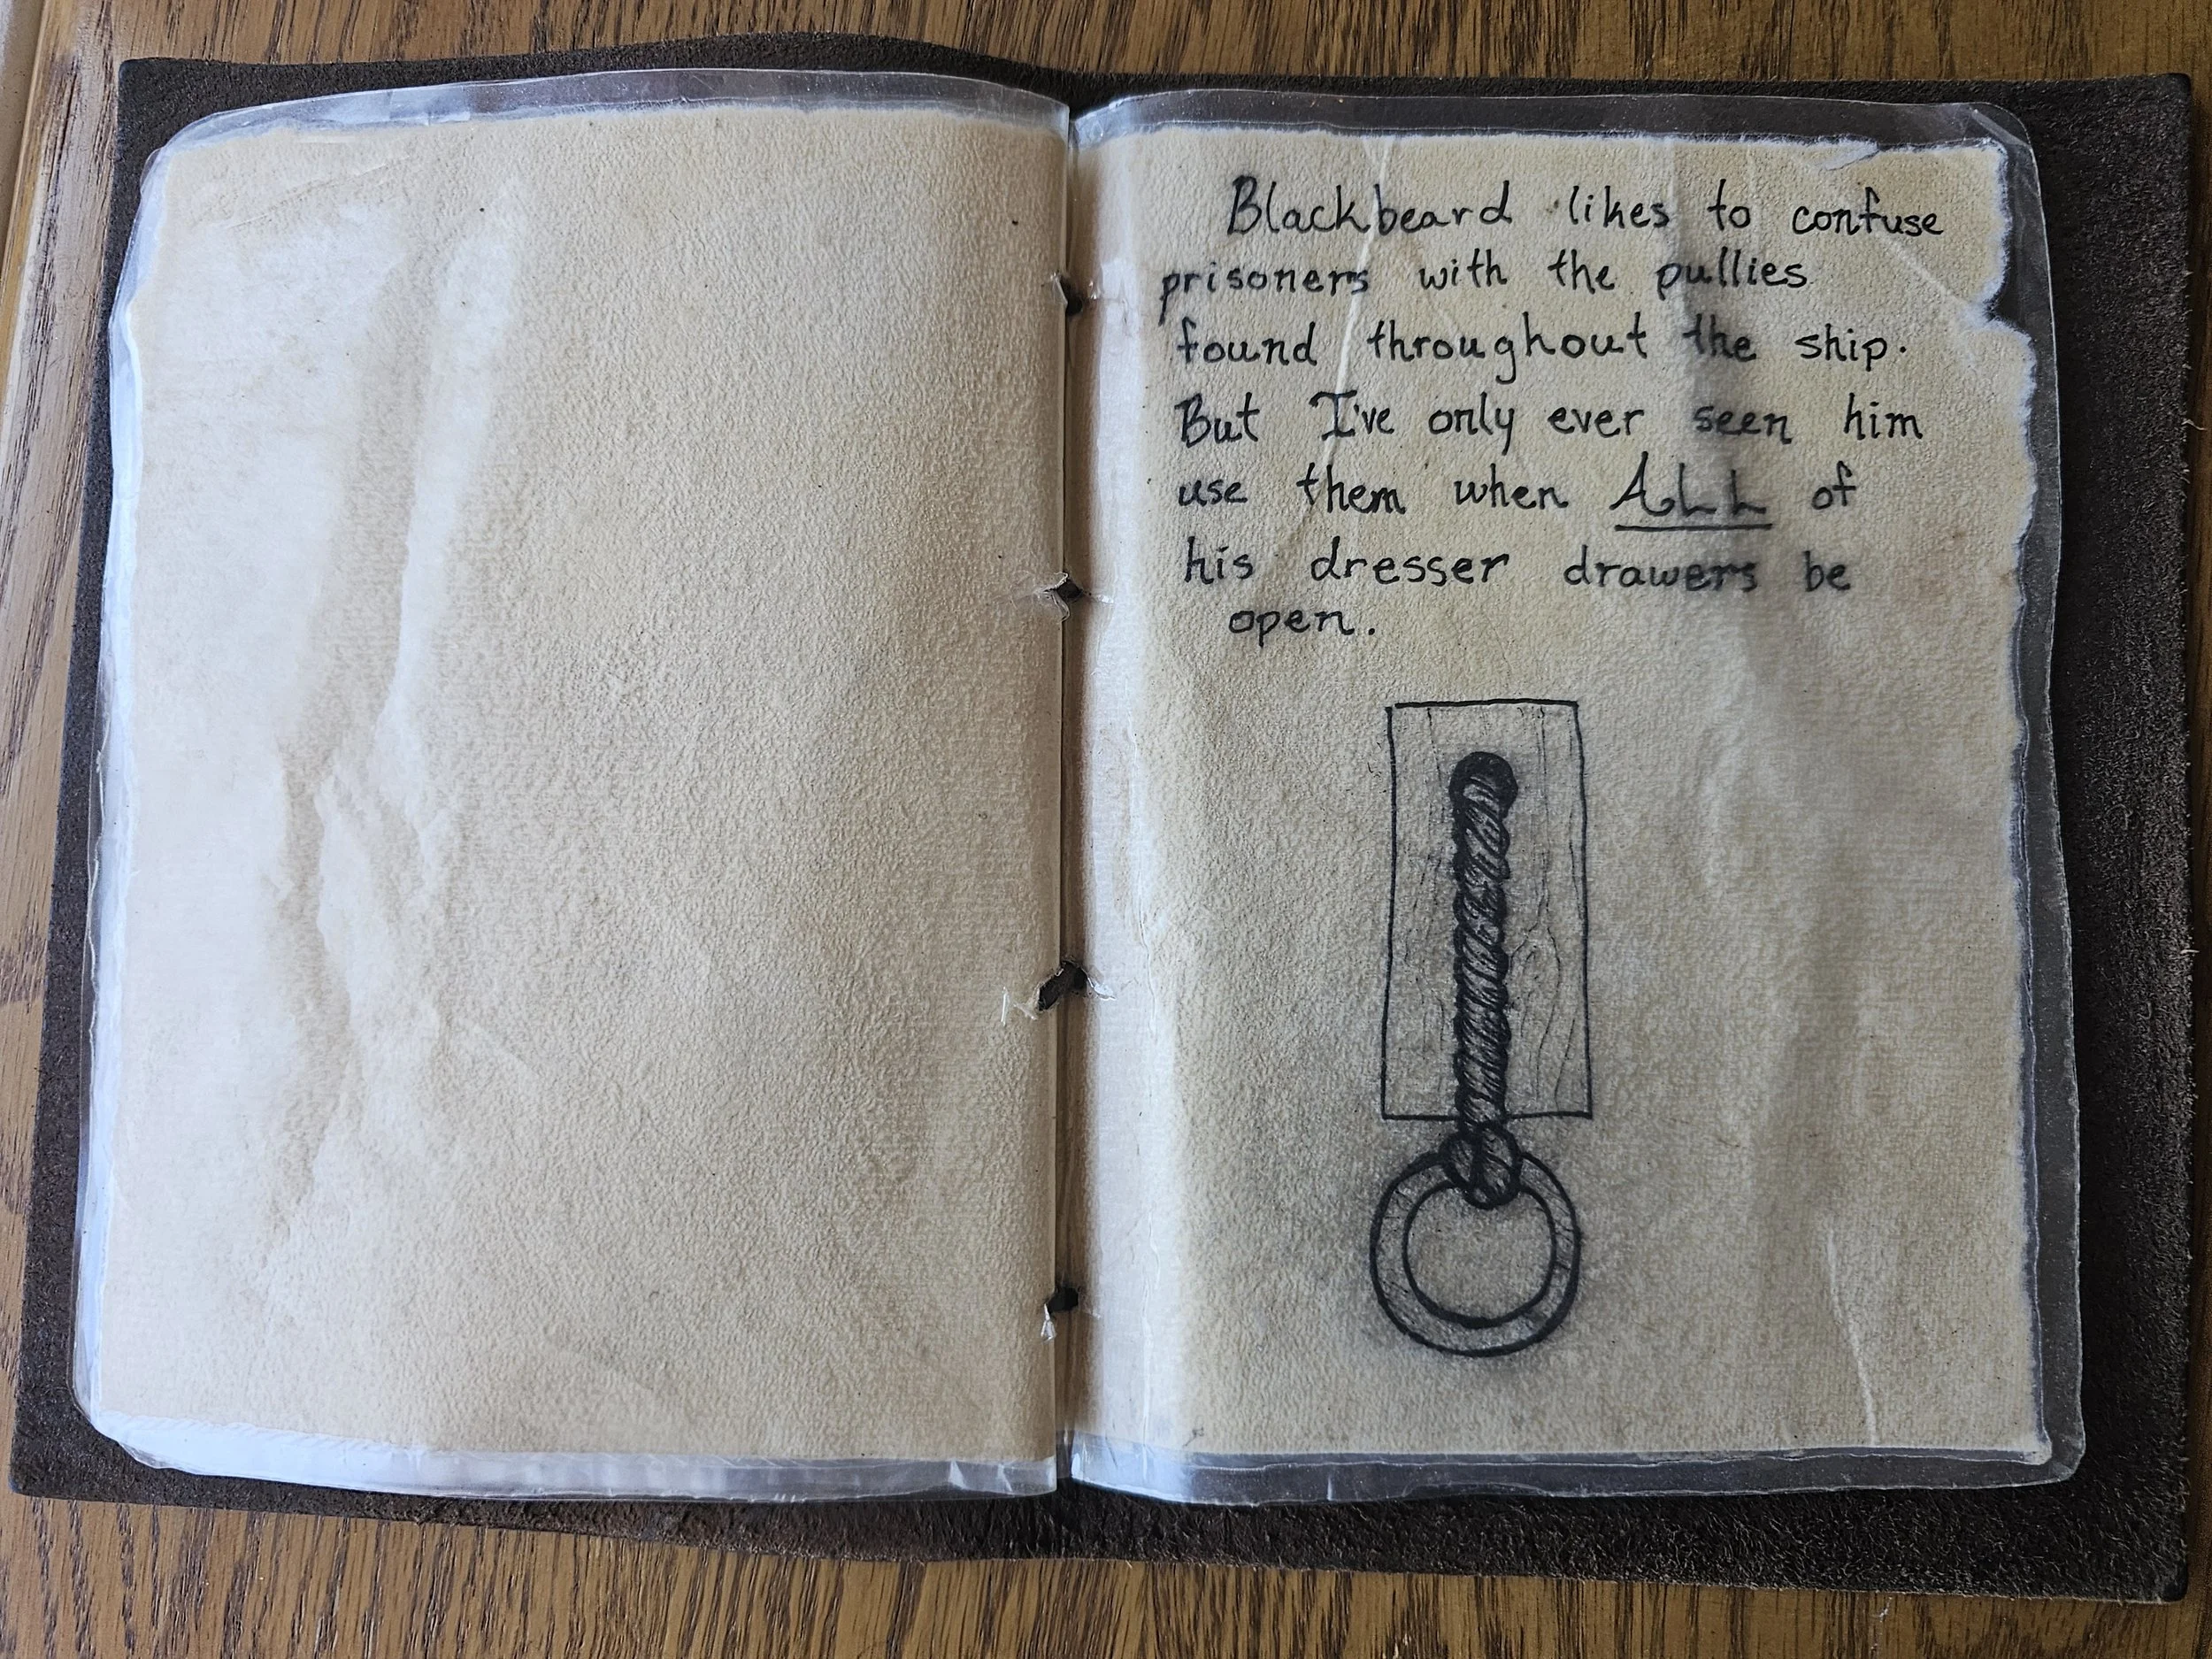 Blackbeard likes to confuse
prisoners with the pullies
found throughout the ship.
But I've only ever seen him
use them when ALL of
his dresser drawers be
open.